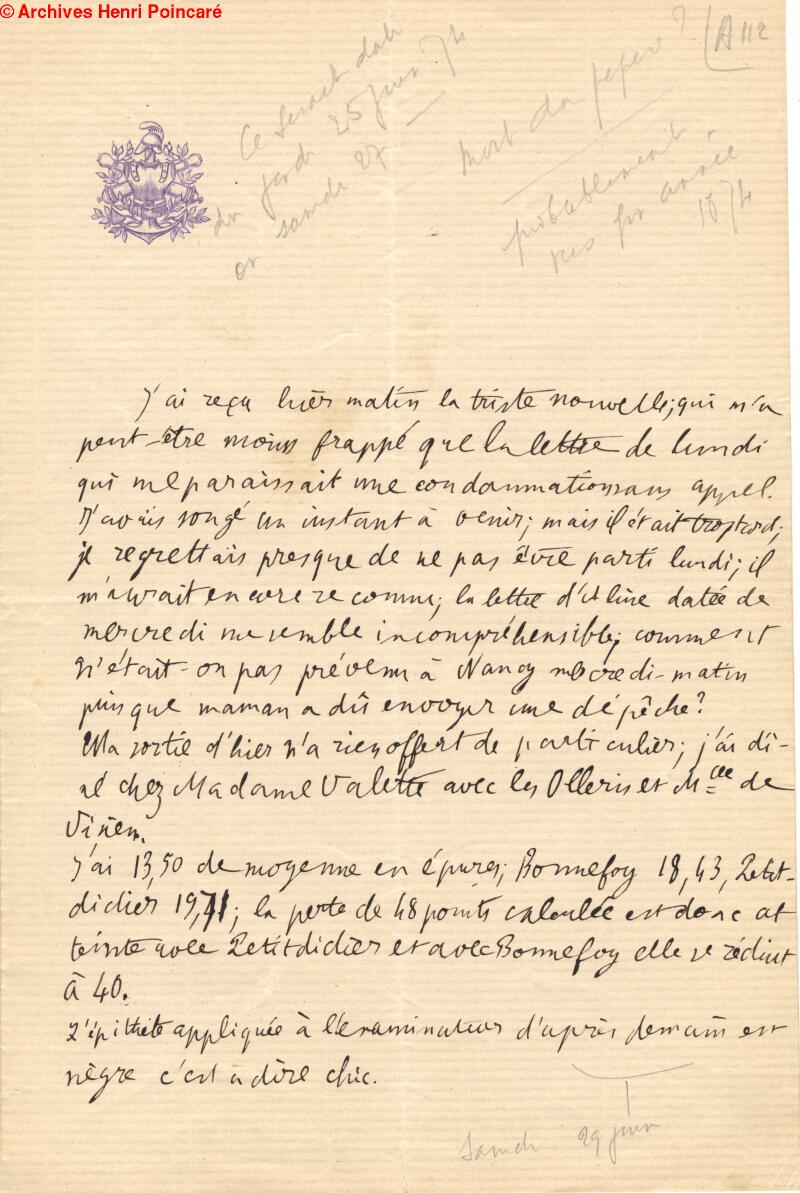 © Archives Henri Poincaré
A 112
Ce serait datée
du jeudi 25 juin 74
ou samedi 27
mort du pépère ?
probablement
année
1874
J'ai reçu hier matin la triste nouvelle; qui m'a
peut-être moins frappé que la lettre de lundi
qui me paraissait une condamnation sans appel.
J'avais songé un instant à venir; mais il était trop tard;
je regrettais presque de ne pas être parti lundi; il
m'aurait encore reconnu; la lettre d'Aline datée de
mercredi me semble incompréhensible; comment
n'était-on pas prévenu à Nancy mercredi-matin
puisque maman a dû envoyer une dépêche?
Ma sortie d'hier n'a rien offert de particulier; j'ai dî-
né chez Madame Valette avec les Olleris et Mcee de
J'ai 13,50 de moyenne en épures; Bonnefoy 18,43, Petit-
didier 19,71; la perte de 48 points calculée est donc at
teinte avec Petitdidier et avec Bonnefoy elle se réduit
à 40.
L'épithète appliquée à l'examinateur d'après demain est
nègre c'est à dire chic.
Samedi 29 juin